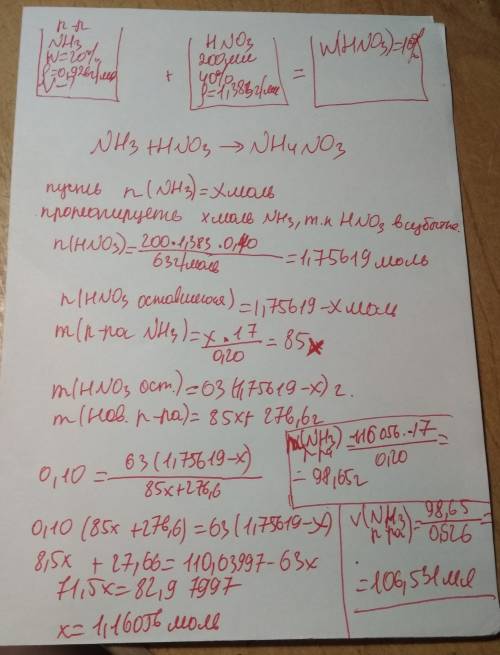 р-р
NH3
W=20%
ρ=0,926г/мл
V-?
+
HNO3
200мл
40%
ρ=1,383г/мл
=
W(HNO3)=10%
NH3+HNO3→NH4NO3
пусть n(NH3)=Xмоль
xмоль NH3, т.к HNO3 в избытке.
n(HNO3)=200·1,383·0,40/63г/моль=1,75619моль
n(HNO3 оставшегося)=1,75619-x моль
m(р-ра NH3)=x·17/0,20=85x
m(HNO3 ост.)=63(1,75619-x)г.
m(нов. р-ра)=85x+276,6г
0,10=63(1,75619-x)/85x+276,6
0,10(85x+276,6)=63(1,75619-x)
8,5x+27,66=110,63997-63x
71,5x=82,97997
x=1,16056 моль
m(NH3 р-ра)=116056·17/0,20=
=98,65г
V(NH3 р-ра)=98,65/0,926=
=106,531мл